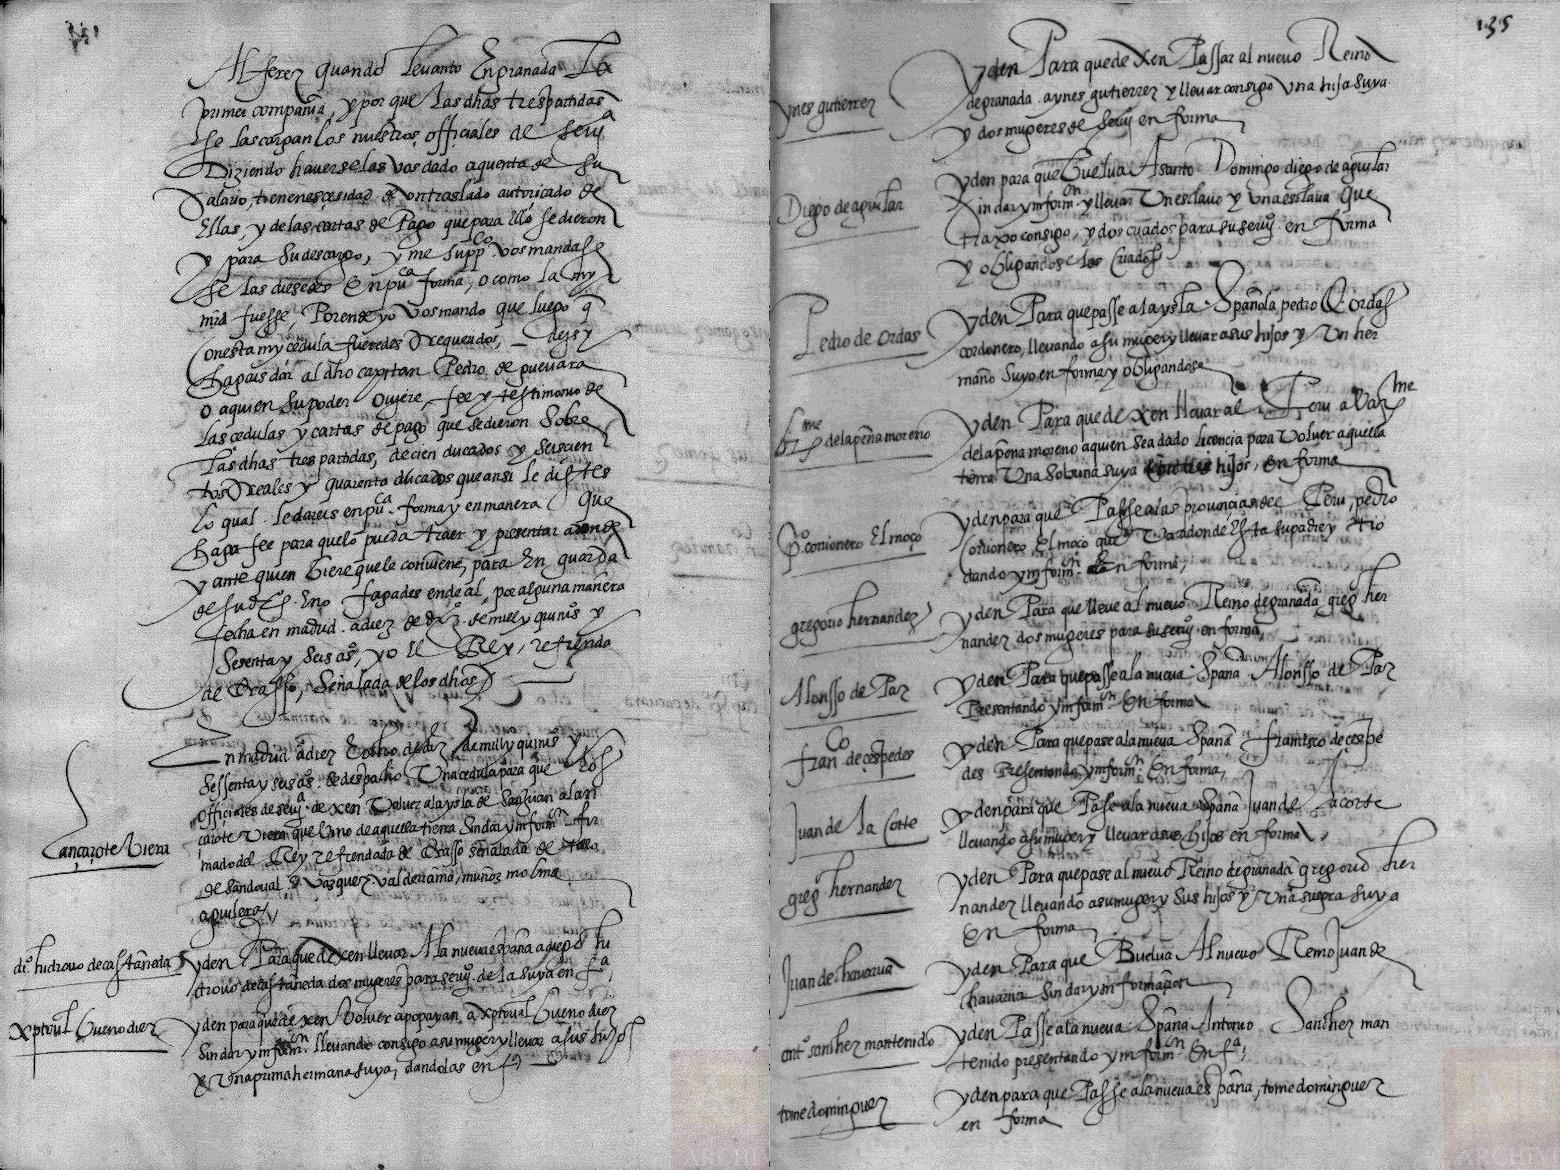 Alferez quando levanto En granada La
primer compañia, y por que las dhas tres partidas
se las cargan los nuestros officiales de Seuia
Diziendo haverselas vos dado a quenta de su
Salario, tiene nescesidad de Vn traslado autorizado de
Ellas, y de las cartas de Pago que para Ello se dieron
y para su descargo, y me suppco vos mandase
se las diesedes En puca forma, o como la my
mrd fuesse, Porende yo Vos mando que luego q
Con esta my cedula fueredes Requeridos, deis y
hagais dar al dho capitan Pedro de guevara
o a quien su poder Oviere, fee y testimonio de
Las cedulas y cartas de pago que se dieron Sobre
Las dhas tres partidas, de cien ducados y seiscien
tos Reales y quarenta ducados que ansi le distes
Lo qual le dareis en puca forma y en manera Que
haga fee para que lo pueda traer y presentar adonde
y ante quien Viere que le conviene, para En guarda
de su dro Eno fagades ende al, por alguna manera
fecha en madrid a diez de dizº de mill y quinºs y
Sesenta y seis aºs, yo El Rey, refrenda
da de Erasso, Señalada de los dhos
En madrid a diez E ocho de dizº de mill y quinºs y
Sessenta y seis aºs se despacho Vna cedula para que los
officiales de seuia dexen Volver a la ysla de San Juan a lan
çarote Viera que Vino de aquella tierra Sin dar ymformon fir
mado del Rey refrendada de Erasso señalada de tello
de Sandoval Vazquez Valderrama, muñoz molina
aguilera
Lançarote Viera
yden Para que dexen llevar A la nueva españa a diego hu
drovo de castañeda dos mugeres para seruiº de la suya en fa
diº hudrovo de castañeda
yden para que dexen Volver a popayan a xptoual bueno diez
Sin dar ymformon llevando consigo a su muger y llevar a sus hijos
y Vna prima hermana suya, dandolas en fa
xptoual bueno diez
135
yden Para que dexen Passar al nuevo Reino
de granada a ynes gutierrez y llevar consigo Vna hija suya
y dos mugeres de seruiº en forma
ynes gutierrez
yden para que buelva A santo Domingo diego de aguilar
Sin dar ymformon y llevar Vn esclavo y Vna esclava Que
traxo consigo, y dos criados para su seruiº en forma
y obligandose los Criados
Diego de aguilar
yden Para que passe a la ysla Española pedro de Ordas
cordonero, llevando a su muger y llevar a sus hijos y Vn her
mano Suyo en forma y obligandose
Pedro de Ordas
yden Para que dexen llevar al Peru a barme
de la peña moreno a quien se a dado licencia para Volver a aquella
tierra Vna Sobrina suya hijos, en forma
brme de la peña moreno
yden para que Passe a las provincias del Peru, pedro
Corionero, El moço que Va a donde esta su padre y tio
dando ymformon En forma,
pº corionero El moço
yden Para que lleve al nuevo Reino de granada gregº her
nandez dos mugeres para su seruiº en forma,
gregorio hernandez
yden Para que passe a la nueva España Alonsso de Paz
Presentando ymformon En forma
Alonsso de Paz
yden Para que pase a la nueva España francisco de cespe
des Presentando ymformon En forma,
franco de cespedes
yden para que Passe a la nueva España Juan de Lacorte
llevando a su muger y llevar a sus hijos en forma
Juan de La Corte
yden Para que pase al nuevo Reino de granada gregorio her
nandez llevando a su muger y sus hijos y Vna suegra suya
En forma
gregº hernandez
yden Para que Buelva Al nuevo Reino Juan de
chavarria sin dar ymformacion
Juan de chavarria
yden Passe a la nueva España Antonio Sanchez man
tenido presentando ymformon En fa,
antº sanchez mantenido
yden para que Passe a la nueva España, tome dominguez
en forma
tome dominguez